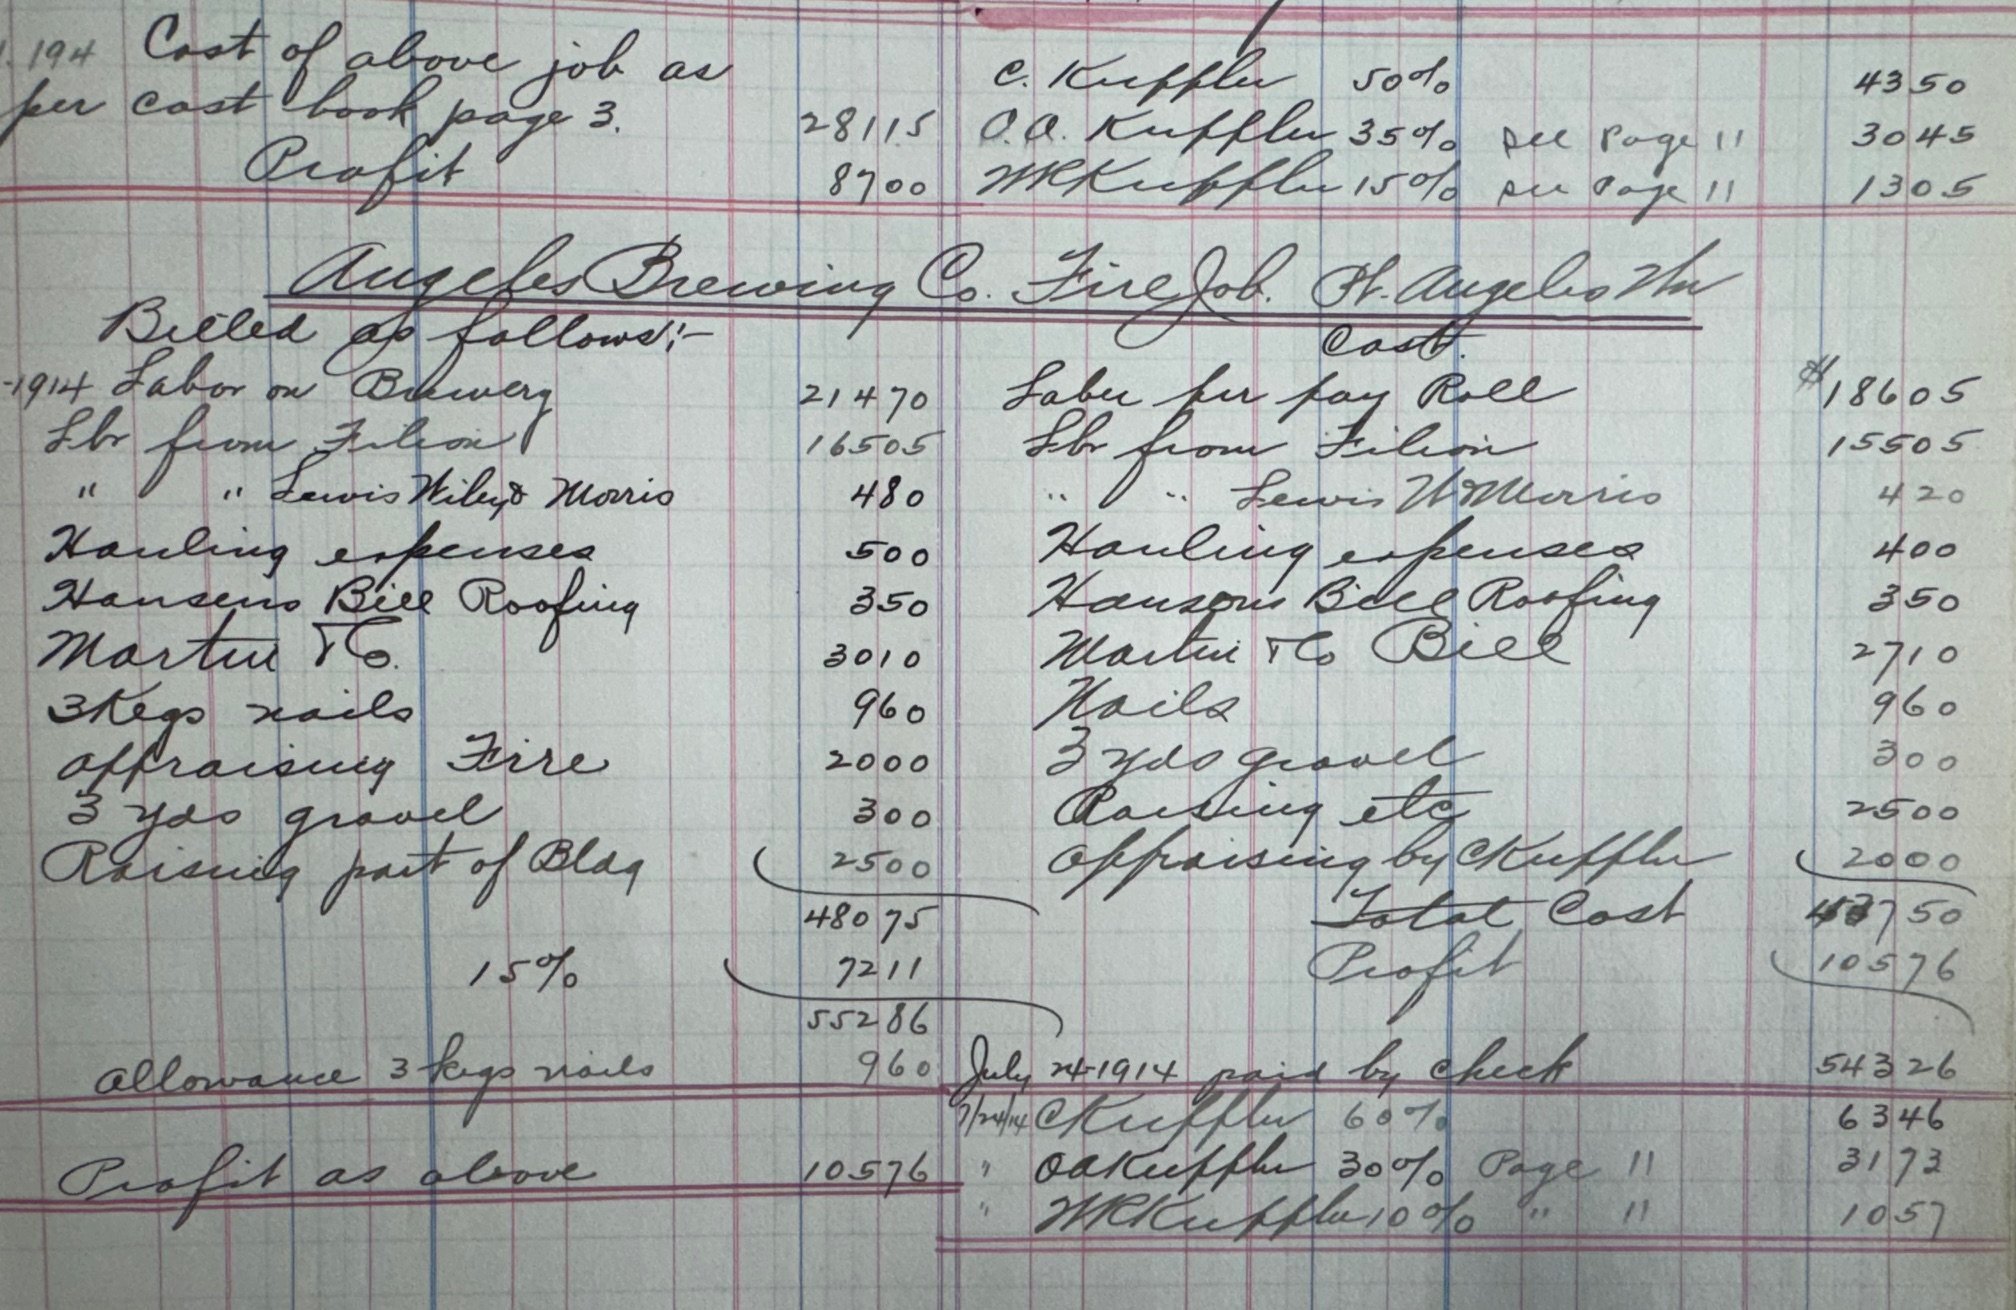 194 Cost of above job as
per cost book page 3. 28115
Profit 8700
C. Kuppler 50% 4350
O.A. Kuppler 35% see Page 11 3045
WR Kuppler 15% see Page 11 1305
Angeles Brewing Co. Fire Job. Pt. Angeles Wn
Billed as follows:-
-1914 Labor on Brewery 21470
Lbr from Filion 16505
" " Lewis Wiley & Morris 480
Hauling expenses 500
Hansens Bill Roofing 350
Martin & Co. 3010
3 Kegs nails 960
appraising Fire 2000
3 yds gravel 300
Raising part of Bldg 2500
48075
15% 7211
55286
allowance 3 kegs nails 960
Profit as above 10576
Cost.
Labor per pay Roll $18605
Lbr from Filion 15505
" " Lewis W & Morris 420
Hauling expenses 400
Hansons Bill Roofing 350
Martin & Co Bill 2710
Nails 960
3 yds gravel 300
Raising etc 2500
appraising by CKuppler 2000
Total Cost 43750
Profit 10576
July 24-1914 paid by check 54326
7/24/14 CKuppler 60% 6346
" OAKuppler 30% Page 11 3173
" WRKuppler 10% " 11 1057